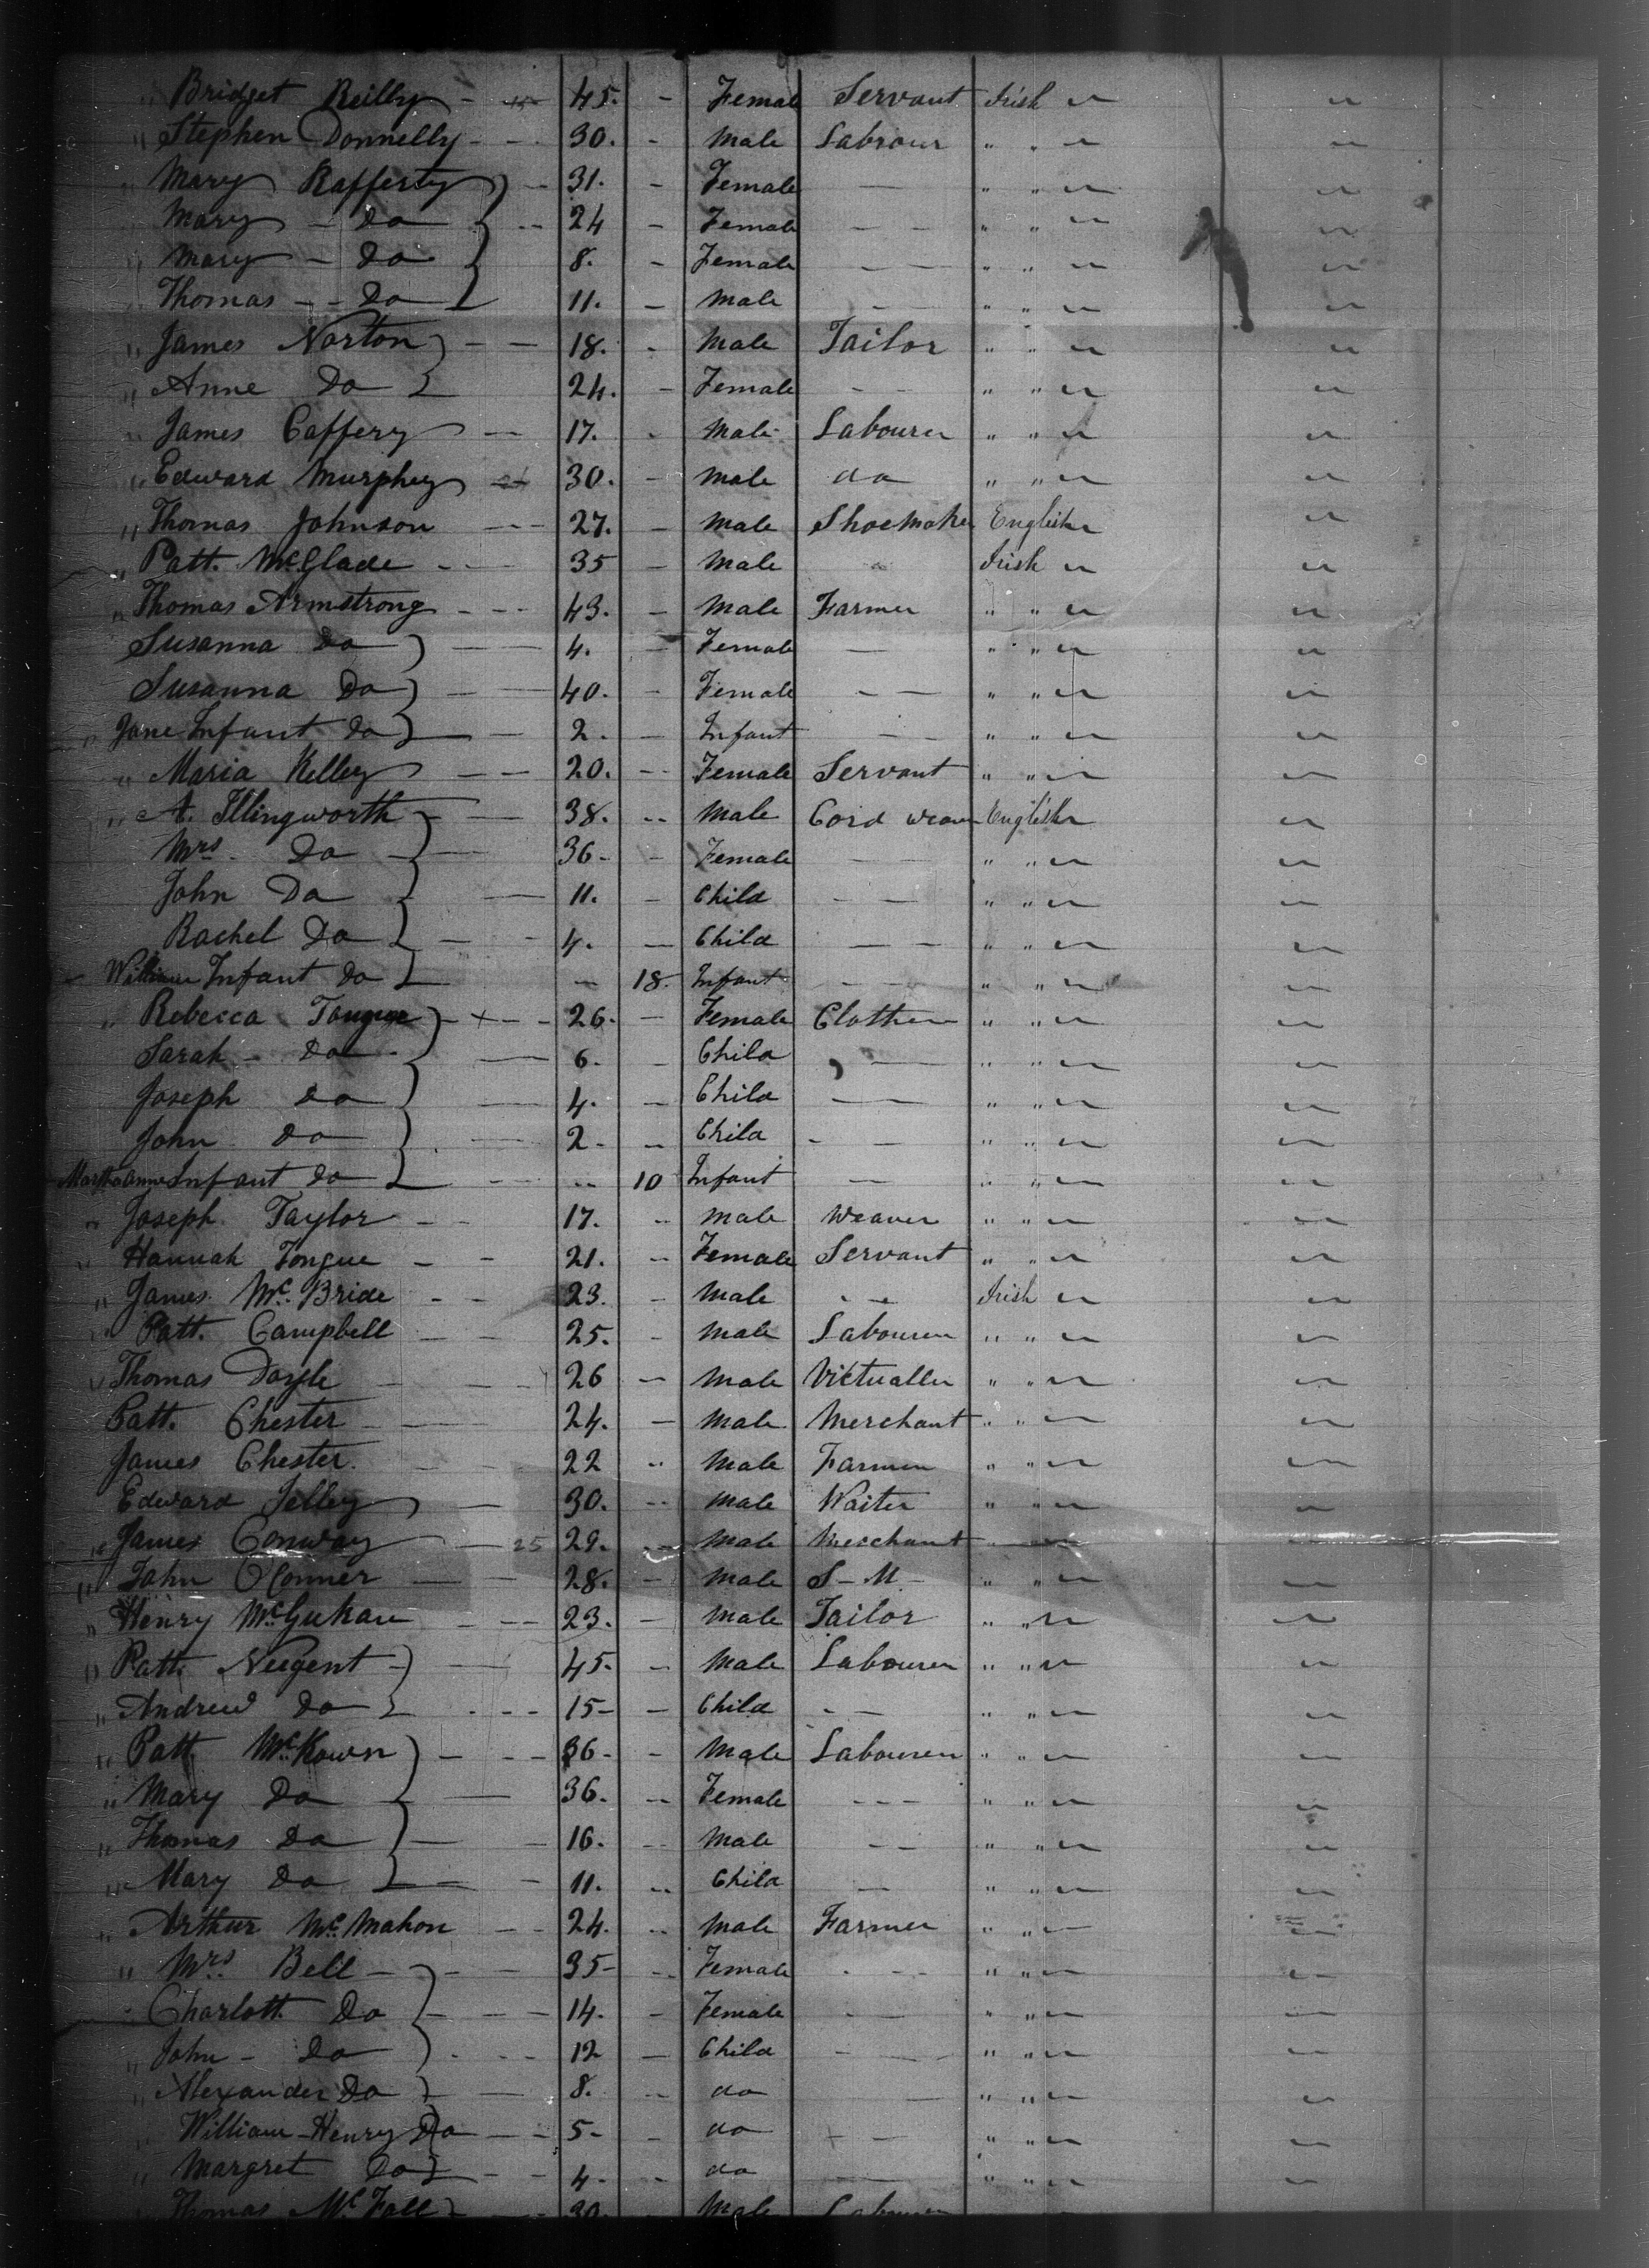 " Bridget Reilly - 45. - Female Servant Irish "
" Stephen Donnelly - - 30. - Male Labrour " " "
" Mary Rafferty } - - 31. - Female — " " "
" Mary - Do } - - 24 - Female — — " " "
" Mary - Do } 8. - Female — — " " "
" Thomas - - Do } 11. - Male — " " "
" James Norton } - - 18. - Male Tailor " " "
" Anne Do } 24. - Female - - " " "
" James Caffery - 17. - Male Labourer " " "
" Edward Murphey - 30. - Male do " " "
" Thomas Johnson - - 27. - Male Shoemaker English "
" Patt. McGlade - - 35 - Male " Irish "
" Thomas Armstrong - - - 43. - Male Farmer " " "
Susanna Do } - - 4. - Female — " " "
Susanna Do } - - 40. - Female - — " " "
" Jane Infant Do } - 2. - Infant - - " " "
" Maria Kelley - - 20. - Female Servant " " "
" A. Illingworth } - - 38. - Male Cord Weaver English "
Mrs. Do } - 36 - - Female — — " " "
John Do } - 11. - Child - — " " "
Rachel Do } - - 4. - Child — - " " "
William Infant Do } - 18. Infant - - " " "
" Rebecca } - + - - 26. - Female Clothier " " "
Sarah - Do } - 6. - Child — " " "
Joseph Do } - 4. - Child — — " " "
John Do } - 2 - - Child - — " " "
Martha Anne Infant Do } - - - 10 Infant — " " "
" Joseph Taylor - - 17. - Male Weaver " " "
" Hannah Tongue - - 21. - Female Servant " " "
" James McBride - - 23. - Male - - Irish "
" Patt. Campbell - - 25. - Male Labourer " " "
" Thomas Doyle - - 26 - Male Victualler " " "
Patt. Chester - - 24. - Male Merchant " " "
James Chester - - 22 " Male Farmer " " "
Edward Jelley - 30. - Male Waiter " " "
" James Conway - 25 29. - Male Merchant " "
" John O'Conner - - 28. - Male S - M - " " "
" Henry - - 23. - Male Tailor " " "
" Patt. Nugent } - 45. - Male Labourer " " "
" Andrew Do } - - - 15 - - Child - — " " "
" Patt. McKown } - - 36 - - Male Labourer " " "
" Mary Do } - 36. - Female - - - " " "
" Thomas Do } - - 16. - Male - - " " "
" Mary Do } - - 11. - Child — " " "
" Arthur McMahon - - 24. - Male Farmer " " "
" Mrs. Bell - } - - 35 - - Female - - - " " "
" Charlott Do } - - - 14. - Female - - " " "
" John - Do } - - - 12 - Child - — " " "
" Alexander Do } - 8. - do — " " "
" William Henry Do } - - 5 - - do — " " "
" Margret Do } - - 4 - - do — " " "
" Thomas McFall } - - 30. - Male Labourer